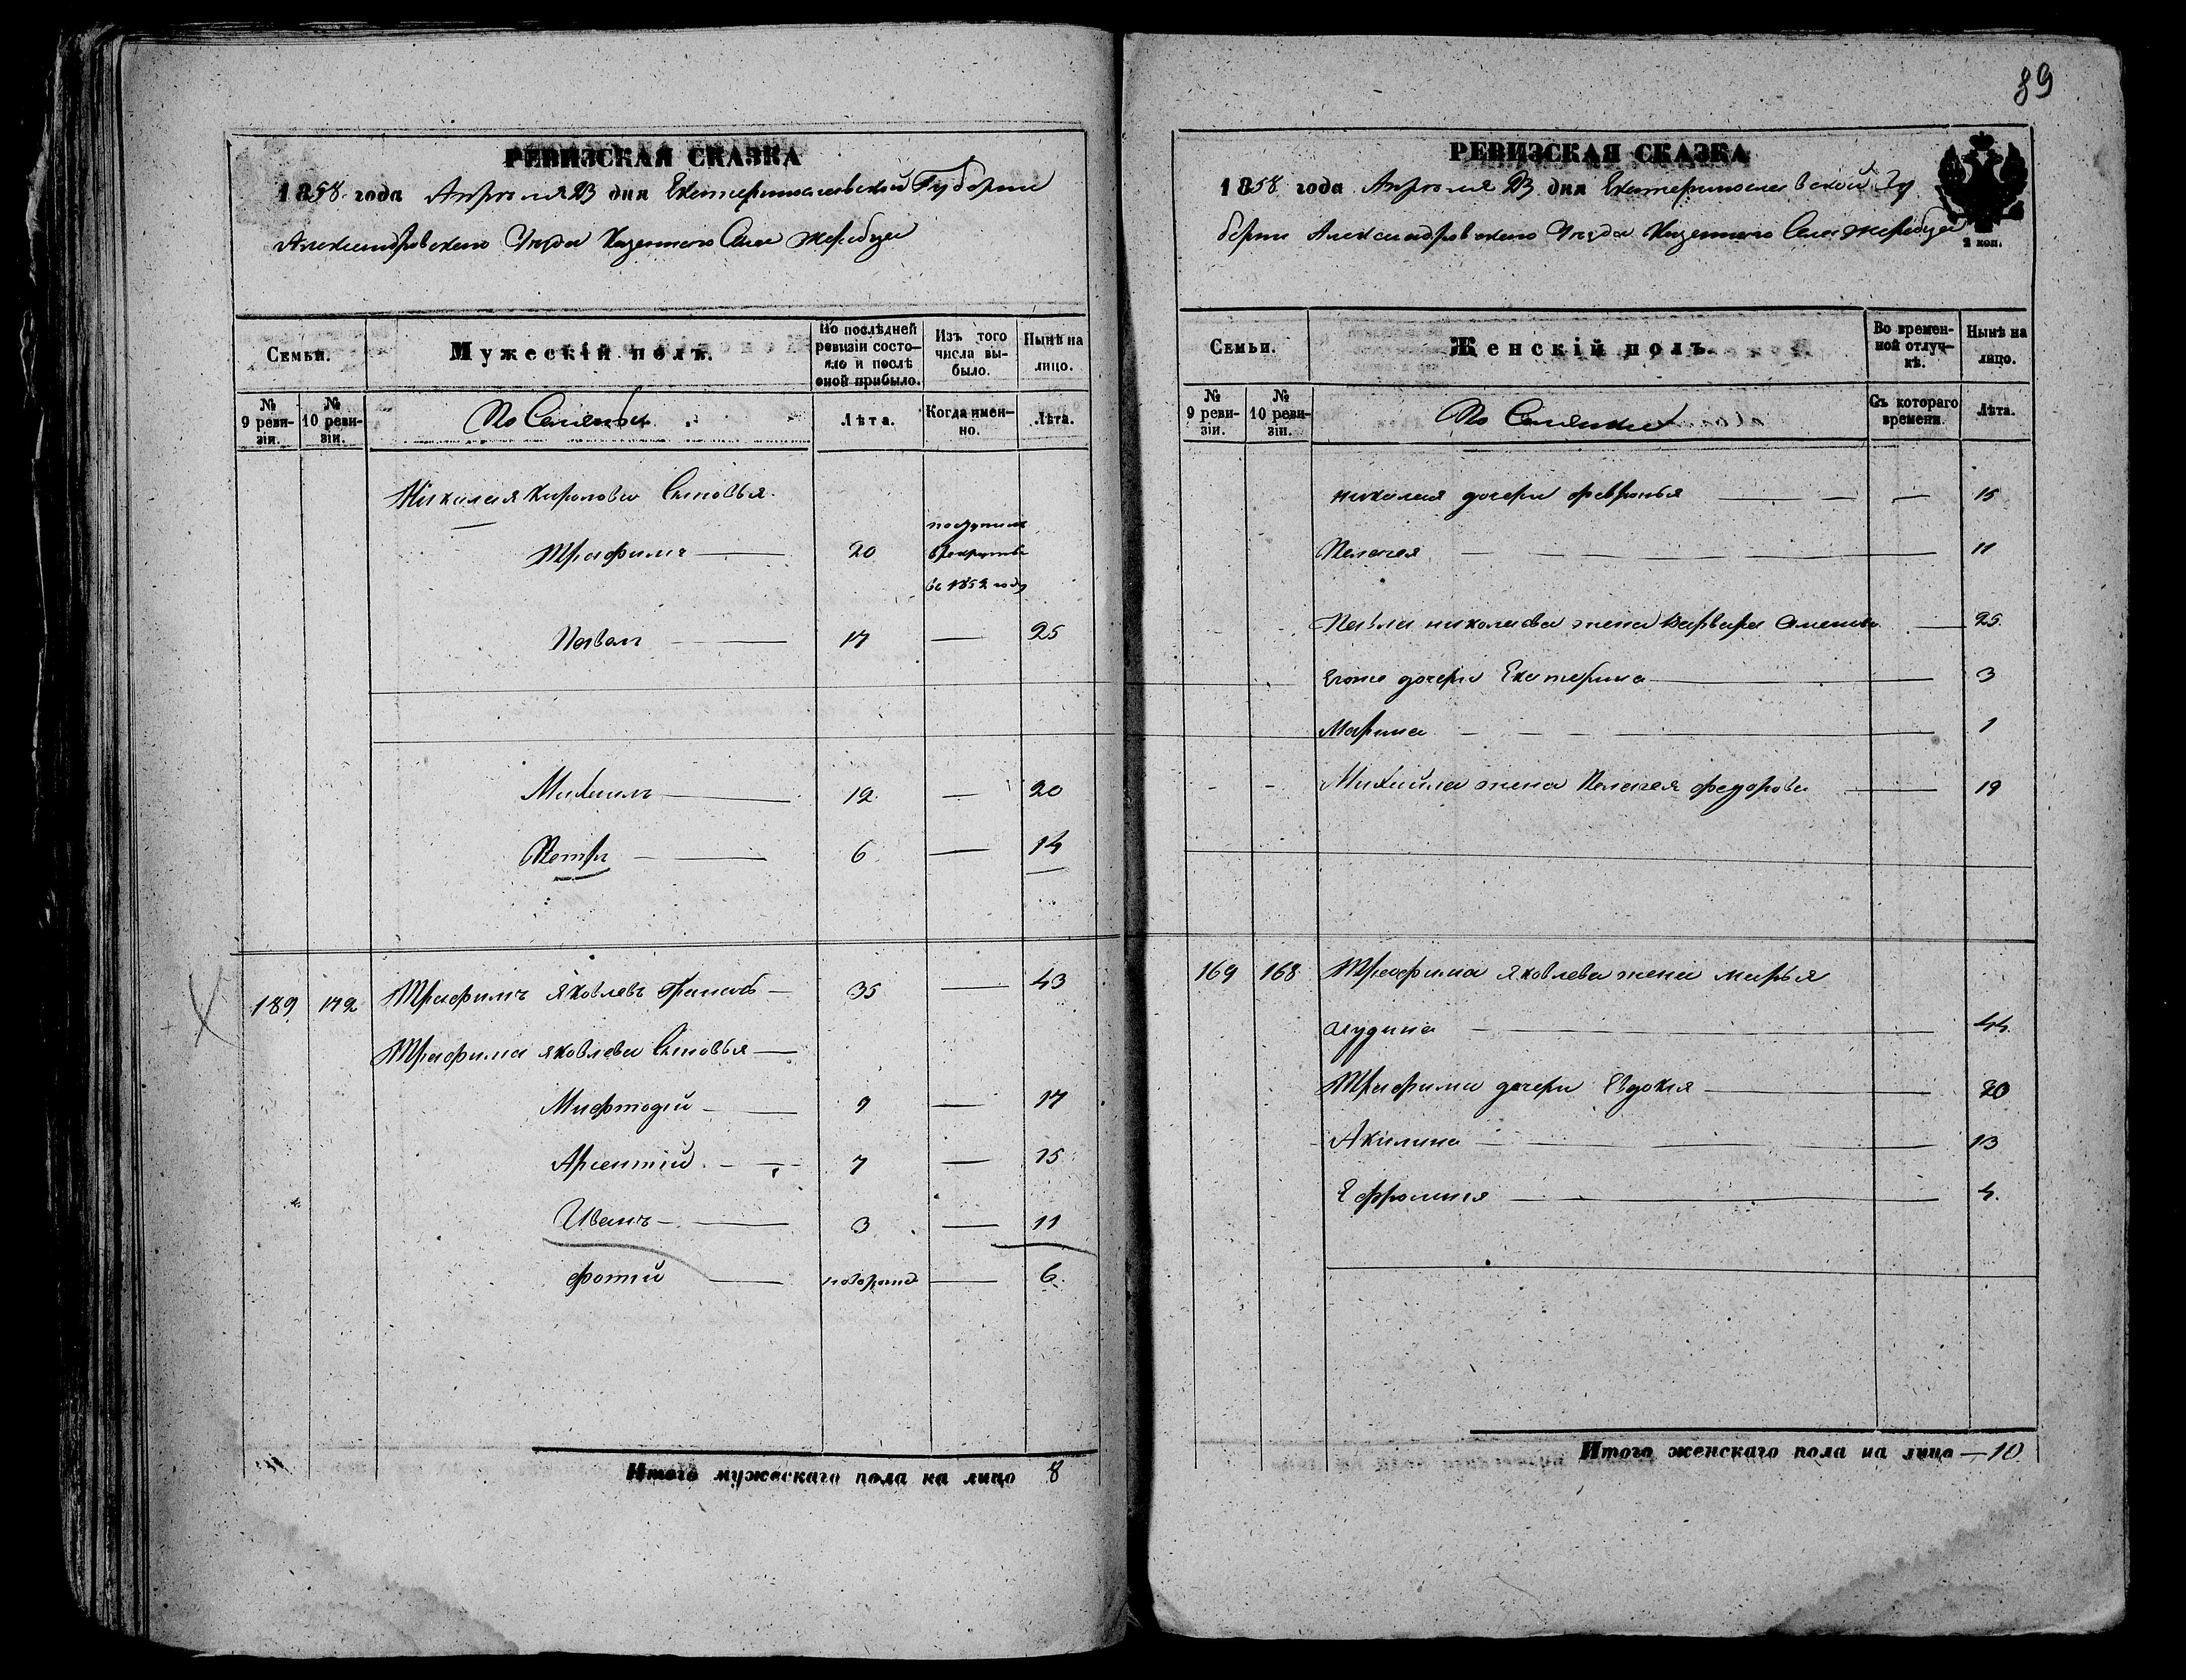 РЕВИЗСКАЯ СКАЗКА
1858 года Апреля 23 дня Екатеринославской Губернии
Александровского Уезда Казенного Села Жеребца
Семьи.
Мужескій полъ.
По послѣдней ревизіи состояло и послѣ оной прибыло.
Изъ того числа выбыло.
Нынѣ на лицо.
№ 9 ревизіи.
№ 10 ревизіи.
Лѣта.
Когда именно.
Лѣта.
Николая Сыновья
Трофимъ 20
в 185 году
Павел 17 — 25
Михаилъ 12 — 20
Петръ 6 — 14
189 172 Трофимъ Яковлевъ — 35 — 43
Трофима Яковлева Сыновья —
Мефтодій 9 — 17
Арсентій 7 — 15
Иванъ 3 — 11
Фотий — 6
Итого мужескаго пола на лицо 8
89
РЕВИЗСКАЯ СКАЗКА
1858 года Апреля 23 дня Екатеринославской Гу
бернии Александровского Уезда Казенного Села Жеребца
2 коп.
Семьи.
Женскій полъ.
Во временной отлучкѣ.
Нынѣ на лицо.
№ 9 ревизіи.
№ 10 ревизіи.
Съ котораго времени.
Лѣта.
николая дочери февронья — 15
Пелагея — 11
Павла николаева жена Варвара — 25
Егоже дочери Екатерина — 3
Марина — 1
Михайла жена Пелагея федорова — 19
169 168 Трофима яковлева жена марья
— 44
Трофима дочери Евдокия — 20
Акилина — 13
Ефросиния — 4
Итого женскаго пола на лицо — 10